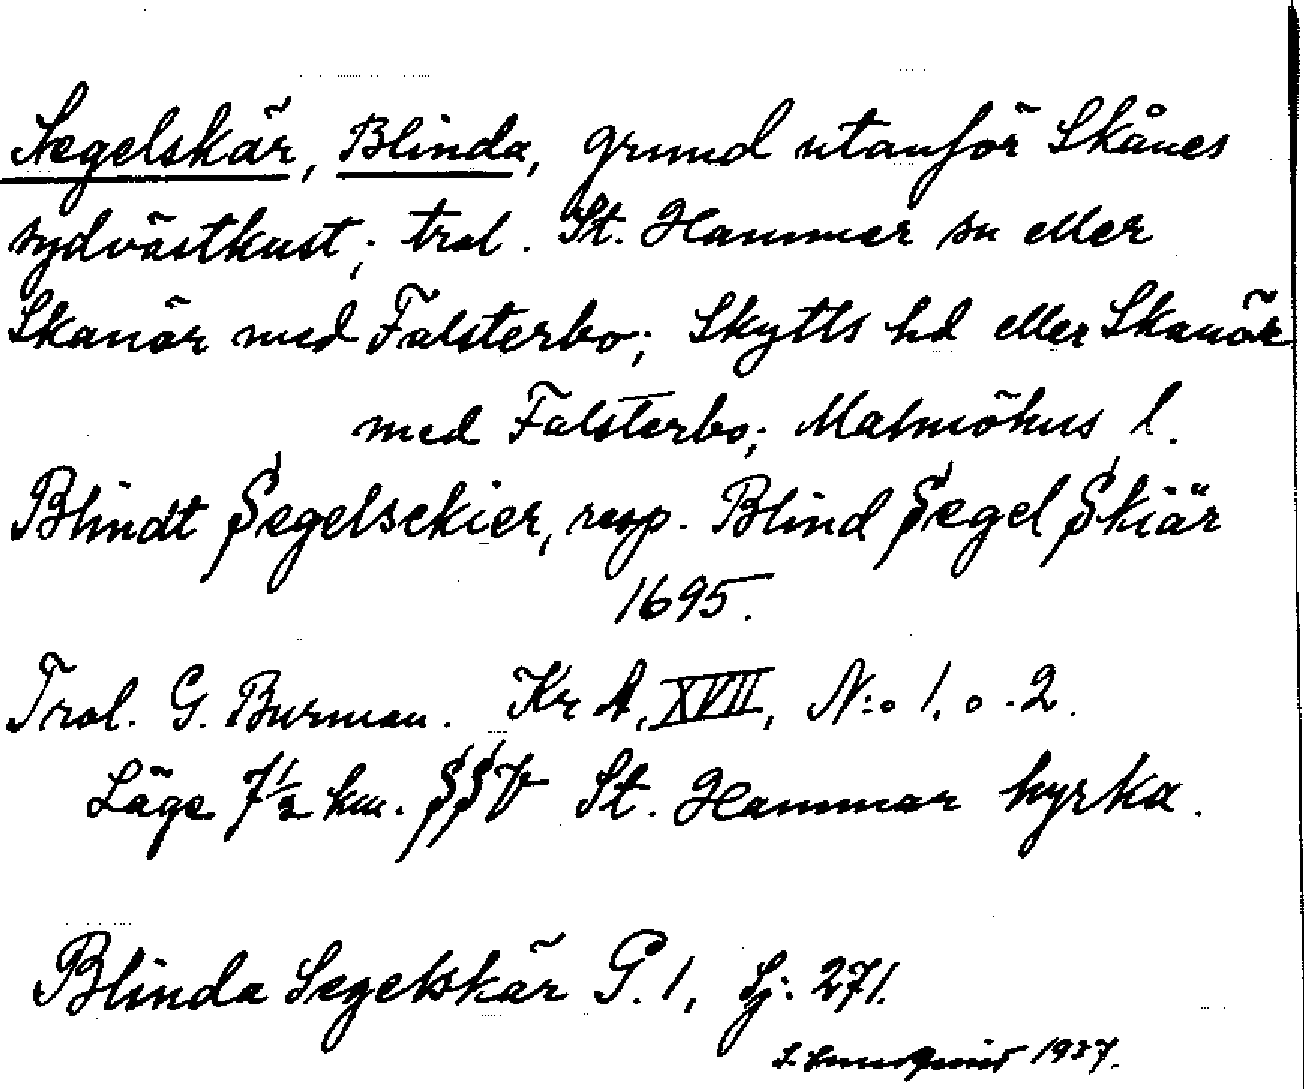 Segelskär, Blinda, grund utanför Skånes
sydvästkust; trol. St. Hammar sn eller
Skanör med Falsterbo; Skytts hd eller Skanör
med Falsterbo; Malmöhus l.
Blindt Segelsckier, resp. Blind Segel Skiär
1695.
Trol. G. Burman. Kr A, XVII, N:o 1. o. 2.
Läge 7½ km. SSV St. Hammar kyrka.
Blinda Segelskär G. 1, Sj. 271.
1927.